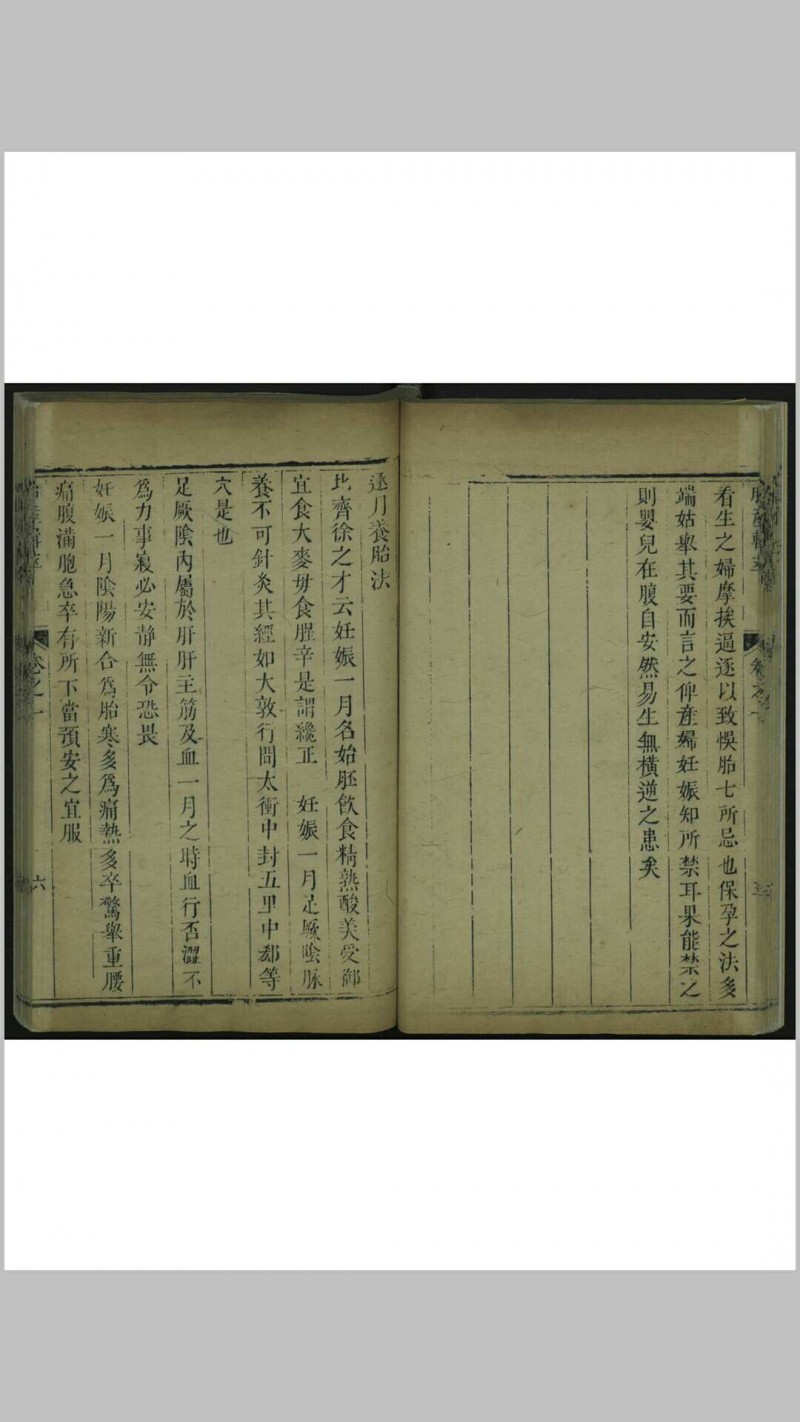 看生之婦摩挨逼逐以致悞胎七所忌也保孕之法多
端姑舉其要而言之仰產婦妊娠知所禁耳果能禁之
則嬰兒在腹自安然易生無橫逆之患矣
逐月養胎法
北齊徐之才云妊娠一月名始胚飲食精熟酸美受御
宜食大麥毋食腥辛是謂纔正 妊娠一月足厥陰脉
養不可針灸其經如大敦行間太衝中封五里中郄等
穴是也
足厥陰內屬於肝肝主筋及血一月之時血行否澀不
為力事寢必安靜無令恐畏
妊娠一月陰陽新合為胎寒多為痛熱多卒驚舉重腰
痛腹滿胞急卒有所下當預安之宜服
卷之一
六